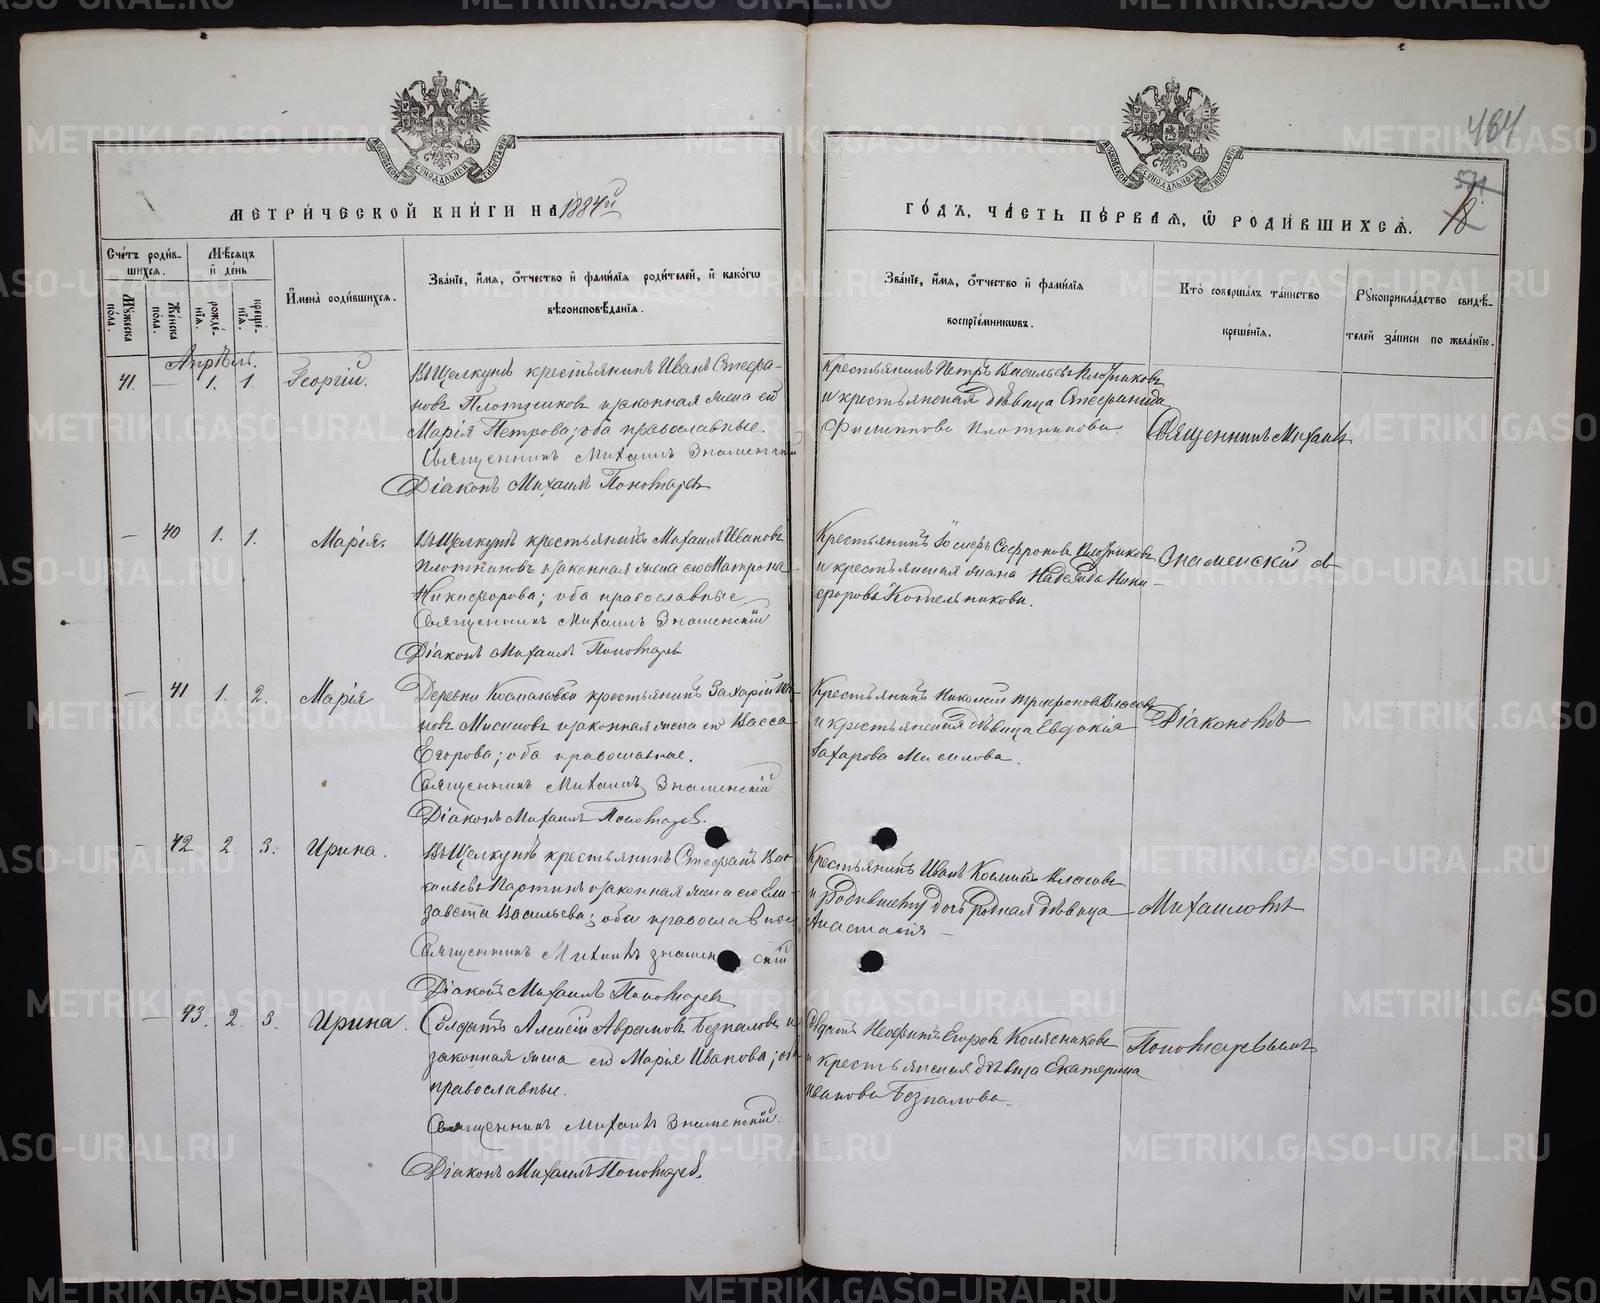 464
571
18
МОСКОВСКОЙ СѴНОДАЛЬНОЙ ТИПОГРАФІИ
МОСКОВСКОЙ СѴНОДАЛЬНОЙ ТИПОГРАФІИ
МЕТРИ́ЧЕСКОЙ КНИ́ГИ НА 1884й
ГО́ДЪ, ЧА́СТЬ ПЕ́РВАЯ, Ѡ РОДИ́ВШИХСѦ.
Сче́тъ роди́в-
шихся.
Мѣсяцъ
и де́нь
Мꙋжеска
пола.
Же́нска
пола.
рожде́-
нїя.
креще́-
нїя.
И҆мена̀ роди́вшихся.
Зва́нїе, и҆́мя, ѻ҆́тчество и҆ фами́лїѧ роди́телей, и҆ како́гѡ
вѣроисповѣ́данїя.
Зва́нїе, и҆́мя, ѻ҆́тчество и҆ фами́лїя
воспрїе́мникѡвъ.
Кто̀ соверша́лъ та́инство
креще́нїя.
Рꙋкоприкла́дство свидѣ́-
телей за́писи по жела́нїю.
Апрѣль.
41. — 1. 1. Георгій.
Въ Щелкунѣ крестьянинъ Иванъ Стефа-
новъ Плотниковъ и законная жена его
Марія Петрова; оба православные.
Священникъ Михаилъ Знаменскій
Діаконъ Михаилъ Пономаревъ
Крестьянинъ Петръ Васильевъ Плотниковъ
и крестьянская дѣвица Стефанида
Филиппова Плотникова.
Священникъ Михаилъ
— 40 1. 1. Марія.
Въ Щелкунѣ крестьянинъ Михаилъ Ивановъ
Плотниковъ и законная жена его Матрона
Никифорова; оба православные
Священникъ Михаилъ Знаменскій
Діаконъ Михаилъ Пономаревъ
Крестьянинъ Іосифъ Софроновъ Плотниковъ
и крестьянская жена Надежда Ники-
форова Котельникова.
Знаменскій съ
— 41 1. 2. Марія
Деревни Космаковой крестьянинъ Захарій Ива-
новъ Мисиловъ и законная жена его Васса
Егорова; оба православные.
Священникъ Михаилъ Знаменскій
Діаконъ Михаилъ Пономаревъ.
Крестьянинъ Николай Трифоновъ Власовъ
и крестьянская дѣвица Евдокія
Захарова Мисилова.
Діакономъ
— 42 2 3. Ирина.
Въ Щелкунѣ крестьянинъ Стефанъ Ва-
сильевъ Партинъ и законная жена его Ели-
завета Васильева; оба православные
Священникъ Михаилъ Знаменскій
Діаконъ Михаилъ Пономаревъ
Крестьянинъ Иванъ Косминъ Власовъ
и Родившему дочь родная дѣвица
Анастасія —
Михаиломъ
— 43. 2. 3. Ирина.
Солдатъ Алексій Аврамовъ Безпаловъ и
законная жена его Марія Иванова; оба
православные.
Священникъ Михаилъ Знаменскій.
Діаконъ Михаилъ Пономаревъ.
Солдатъ Неофитъ Егоровъ Колясниковъ
и крестьянская дѣвица Екатерина
Иванова Безпалова.
Пономаревымъ
METRIKI.GASO-URAL.RU